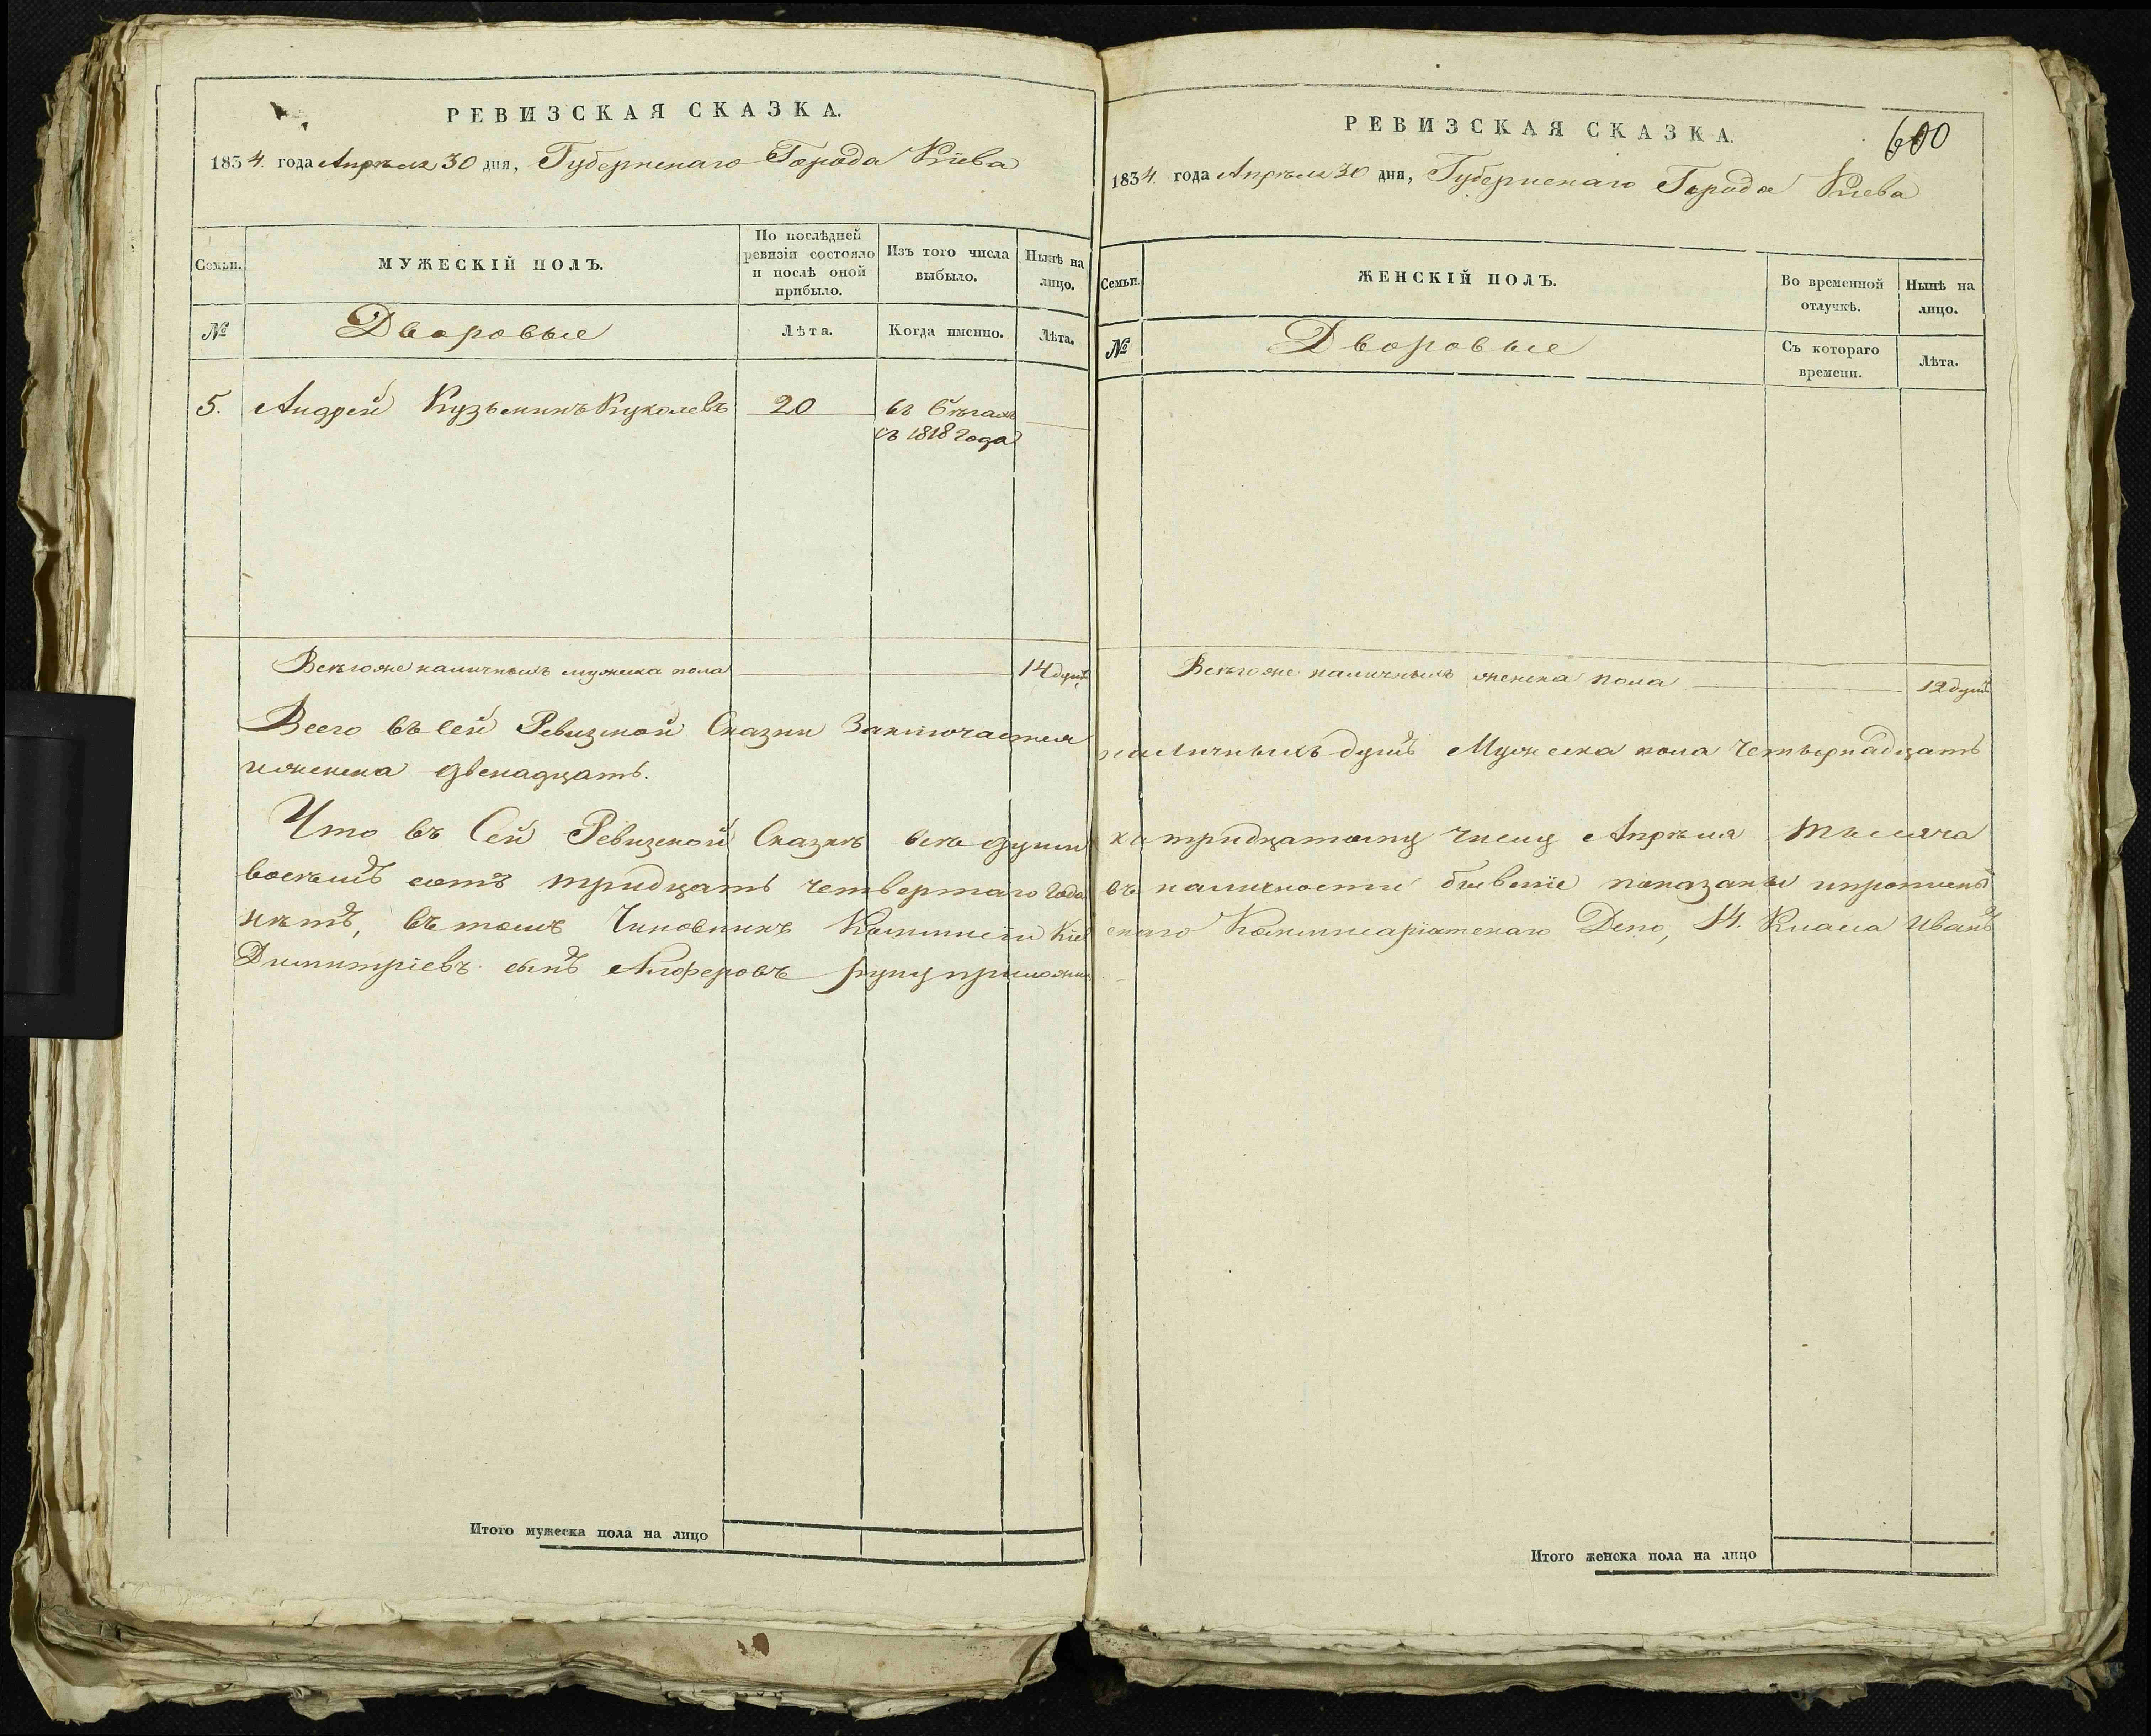 РЕВИЗСКАЯ СКАЗКА.
1834. года Апрѣля 30 дня, Губернскаго Города Кіева
Семьи.
МУЖЕСКІЙ ПОЛЪ.
По послѣдней ревизіи состояло и послѣ оной прибыло.
Изъ того числа выбыло.
Нынѣ на лицо.
№
Дворовые
Лѣта.
Когда именно.
Лѣта.
5. Андрей Кузьминъ Куколевъ 20 въ бѣгахъ
съ 1818 года
Всѣго же наличныхъ мужска пола 14 душъ
Всего въ сей Ревизской Сказки Заключается
и женска двенадцать.
Что въ Сей Ревизской Сказкѣ всѣ души
восѣмь сотъ тридцать четвертаго Года
нѣтъ, въ томъ Чиновникъ Коммисіи Кіев
Димитріевъ сынъ Алферовъ руку приложилъ
Итого мужеска пола на лицо
РЕВИЗСКАЯ СКАЗКА.
600
1834. года Апрѣля 30 дня, Губернскаго Города Кіева
Семьи.
ЖЕНСКІЙ ПОЛЪ.
Во временной отлучкѣ.
Нынѣ на лицо.
№
Дворовые
Съ котораго времени.
Лѣта.
Всѣго же наличныхъ женска пола 12 душъ
наличныхъ душъ Мужеска пола Четырнадцать
къ тридцатому числу Апрѣля тысяча
въ наличности бывшіе показаны
скаго Коммисаріатскаго Депо, 14. Класа Иванъ
Итого женска пола на лицо